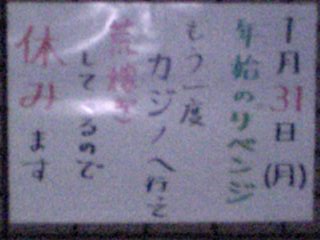 1月31日(月)
年始のリベンジ
もう一度
カジノへ行き
荒稼ぎ
してくるので
休みます